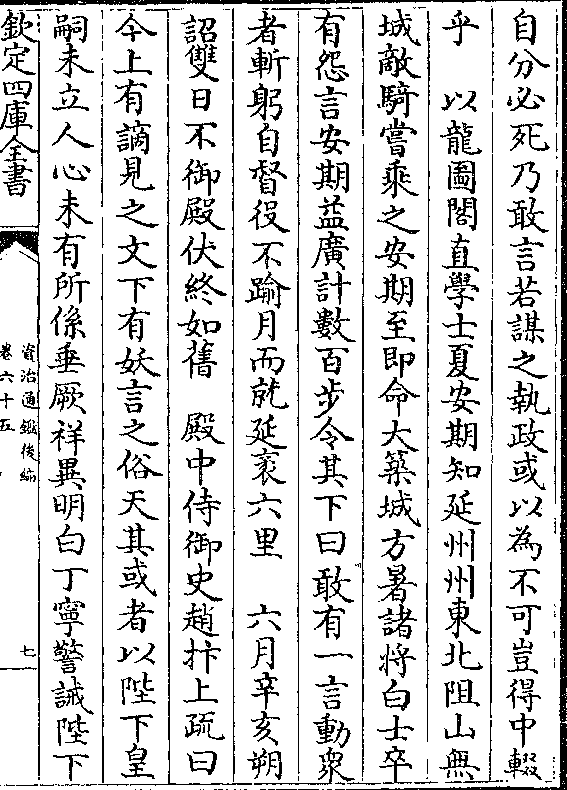 自分必死乃敢言若謀之執政或以為不可豈得中輟
乎　以龍圖閣直學士夏安期知延州州東北阻山無
城敵騎嘗乘之安期至即命大築城方暑諸將白士卒
有怨言安期益廣計數百步令其下曰敢有一言動衆
者斬躬自督役不踰月而就延袤六里　六月辛亥朔
詔雙日不御殿伏終如舊　殿中侍御史趙抃上疏曰
今上有謫見之文下有妖言之俗天其或者以陛下皇
嗣未立人心未有所係垂厥祥異明白丁寧警誡陛下
欽定四庫全書
資治通鑑後編
卷六十五
七